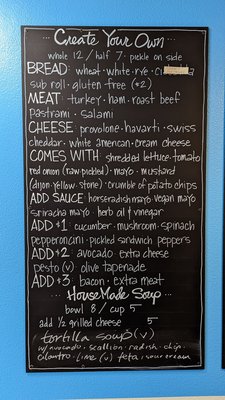 Create Your Own
whole 12 / half 7 · pickle on side
BREAD · wheat · white · rye ·
sub roll · gluten free (+2)
MEAT · turkey · ham · roast beef
pastrami · salami
CHEESE provolone · havarti · swiss
cheddar · white american · cream cheese
COMES WITH shredded lettuce · tomato
red onion (raw · pickled) · mayo · mustard
(dijon · yellow · stone) · crumble of potato chips
ADD SAUCE · horseradish mayo vegan mayo
sriracha mayo · herb oil & vinegar
ADD $1 · cucumber · mushroom · spinach
pepperoncini · pickled sandwich peppers
ADD $2 · avocado · extra cheese
pesto (v) olive tapenade
ADD $3 · bacon · extra meat
House Made Soup
bowl 8 / cup 5
add ½ grilled cheese 5
tortilla soup (v)
w/ avocado · scallion · radish · chip ·
cilantro · lime (v) feta, sour cream